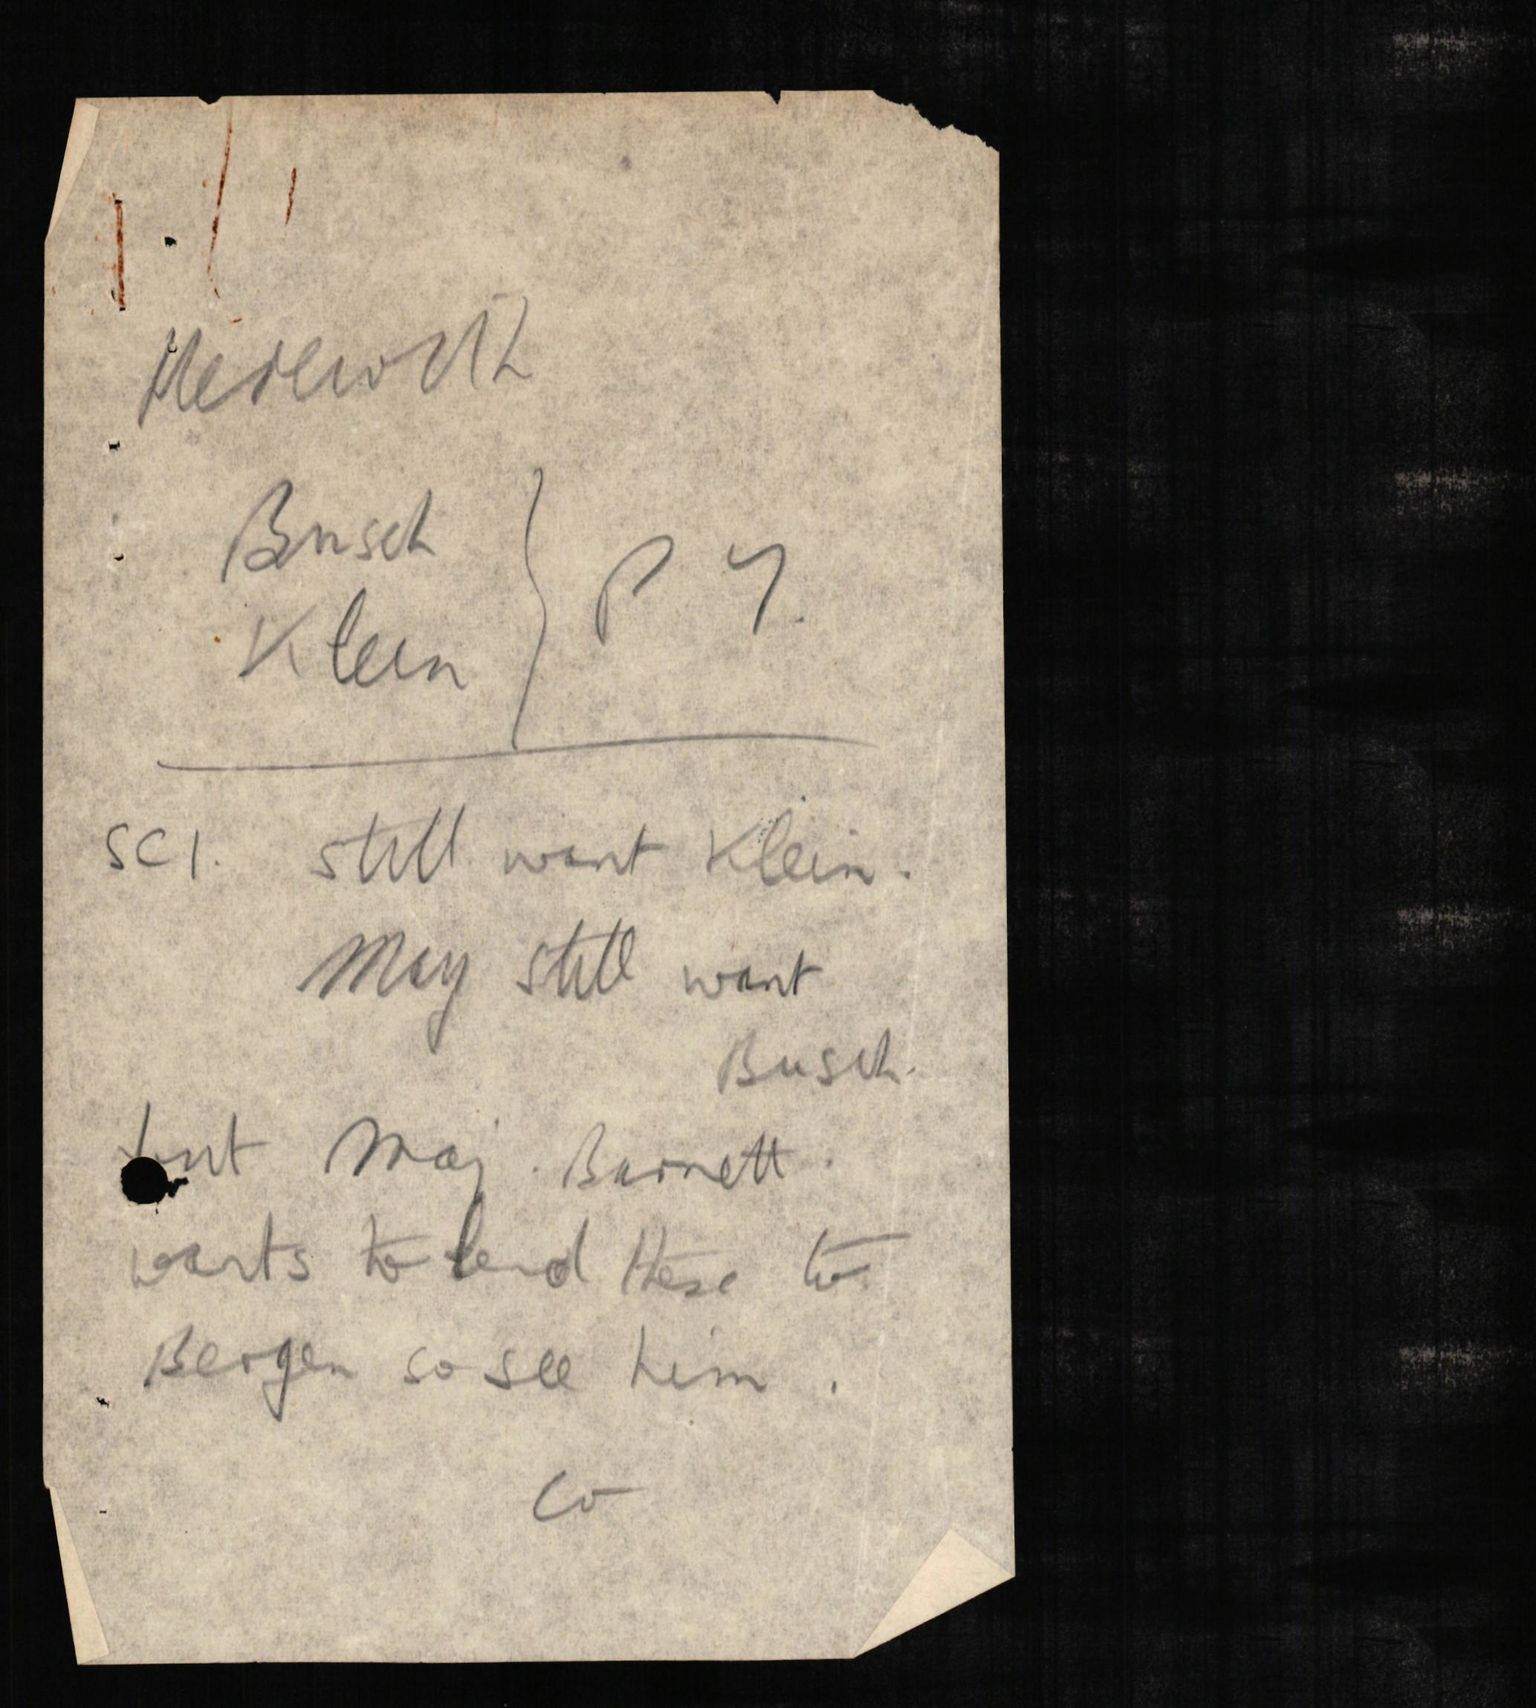 Hedworth
Busch } P 7.
Klein
SCI. still want Klein.
May still want
Busch.
but Maj. Barnett.
wants to send these to
Bergen so see him.